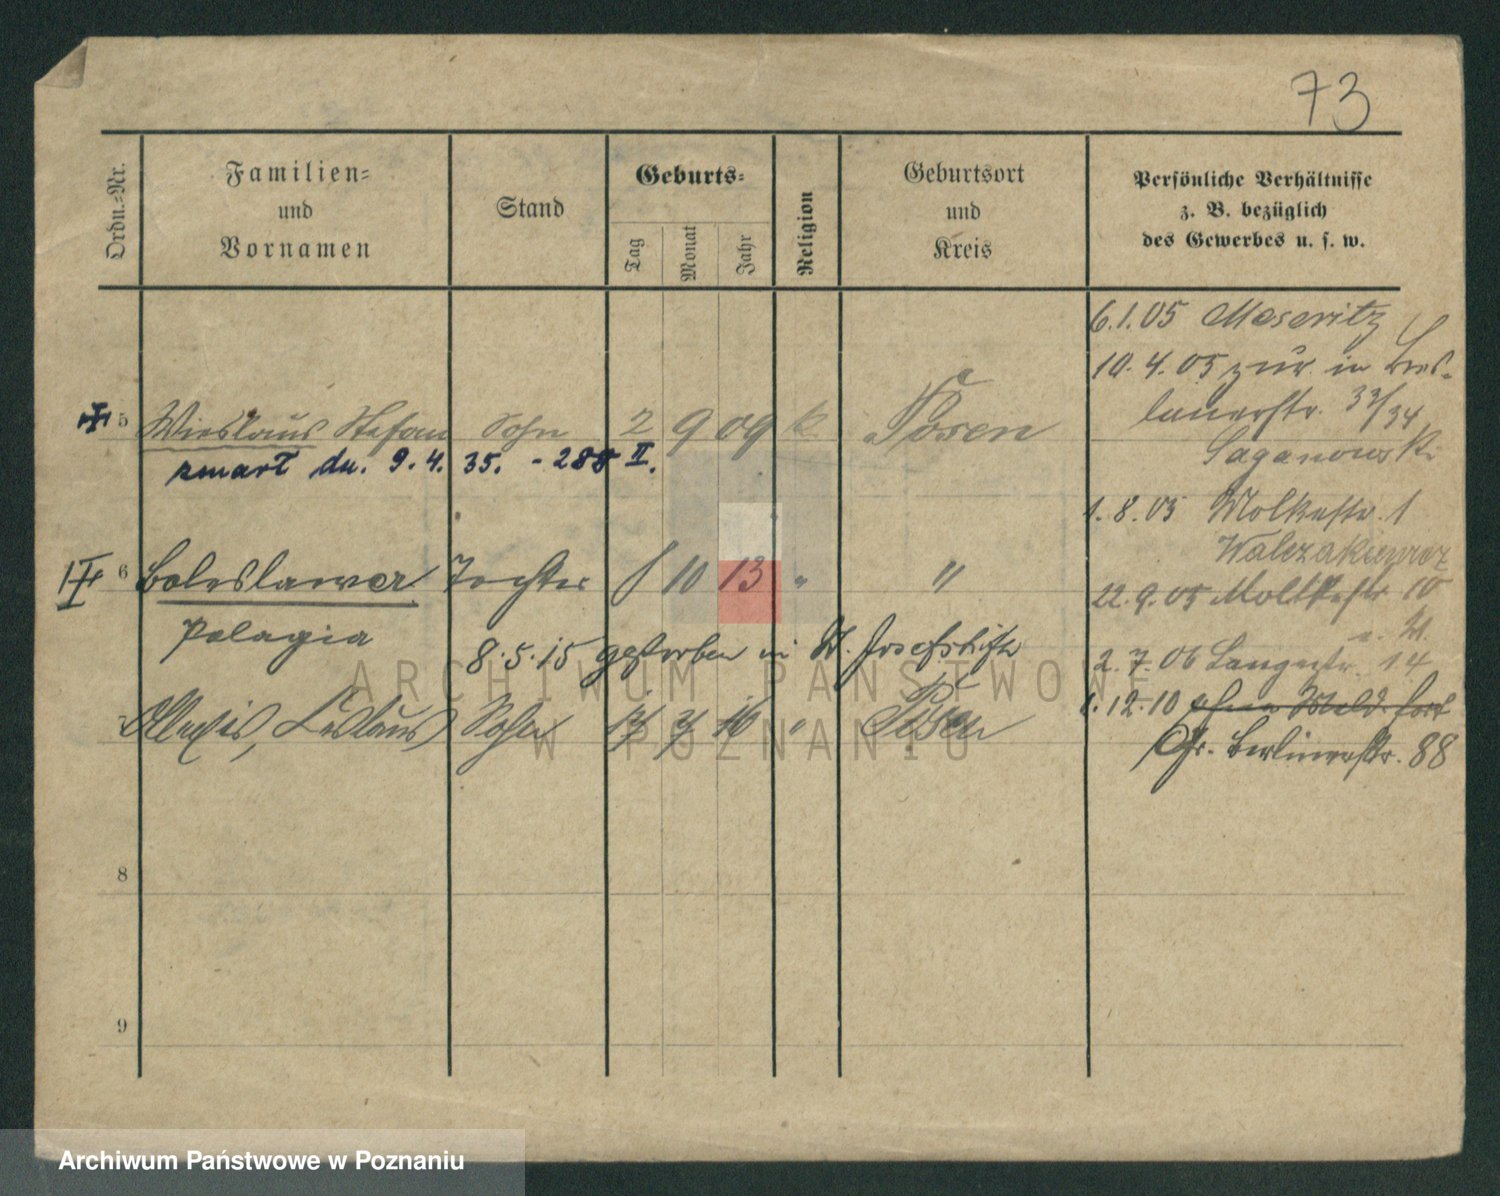 73
Ordn.=Nr.
Familien=
und
Vornamen
Stand
Geburts=
Tag
Monat
Jahr
Religion
Geburtsort
und
Kreis
Persönliche Verhältnisse
z. B. bezüglich
des Gewerbes u. s. w.
6.1.05 Meseritz
10.4.05 zur. in Bres-
lauerstr. 33/34
Saganowski
5 Wieslaus Stefan Sohn 2 9 09 k Posen
zmarł dn. 9.4.35. - 288 II.
1.8.05 Molkestr. 1
22.9.05 Moltkestr. 10
6 Boleslawa Tochter 10 13 " "
Pelagia
8.5.15 gestorben in St. Josefstift
2.7.06 Langestr. 14
1.12.10 ohne Meld. fort
7 Alexis, Ceslaus Sohn 16 " Posen
Gr. Berlinerstr. 88
8
9
ARCHIWUM PAŃSTWOWE
W POZNANIU
Archiwum Państwowe w Poznaniu